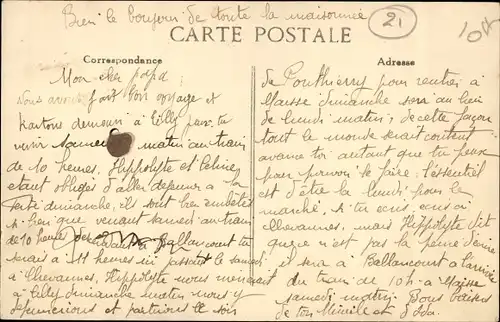 Bien le bonjour de toute la maisonnée
21
CARTE POSTALE
Correspondance
Adresse
Mon cher papa
Nous avons fait bon voyage et
partons demain à Milly peux tu
venir samedi matin au train
de 10 heures. Hippolyte et
étant obligés d'aller déjeuner à la
Ferté dimanche, ils sont bien embêtés
si bien que venant samedi au train
de 10 heures Ballancourt tu
serais à 11 heures ici passant le samedi
à Chevannes, Hippolyte nous menerait
à Milly dimanche matin nous y
déjeunerions et partirions le soir
de Ponthierry pour rentrer à
Maisse dimanche sera au lieu
de lundi matin, de cette façon
tout le monde serait content
avance toi autant que tu peux
pour pouvoir le faire; l'essentiel
est d'être là lundi pour le
marché, si tu écris, écris à
Chevannes, mais Hippolyte dit
que ce n'est pas la peine d'écrire
il sera à Ballancourt à l'arrivée
du train de 10h à Maisse
samedi matin. Doux baisers
de ton Mimille et d'Ida